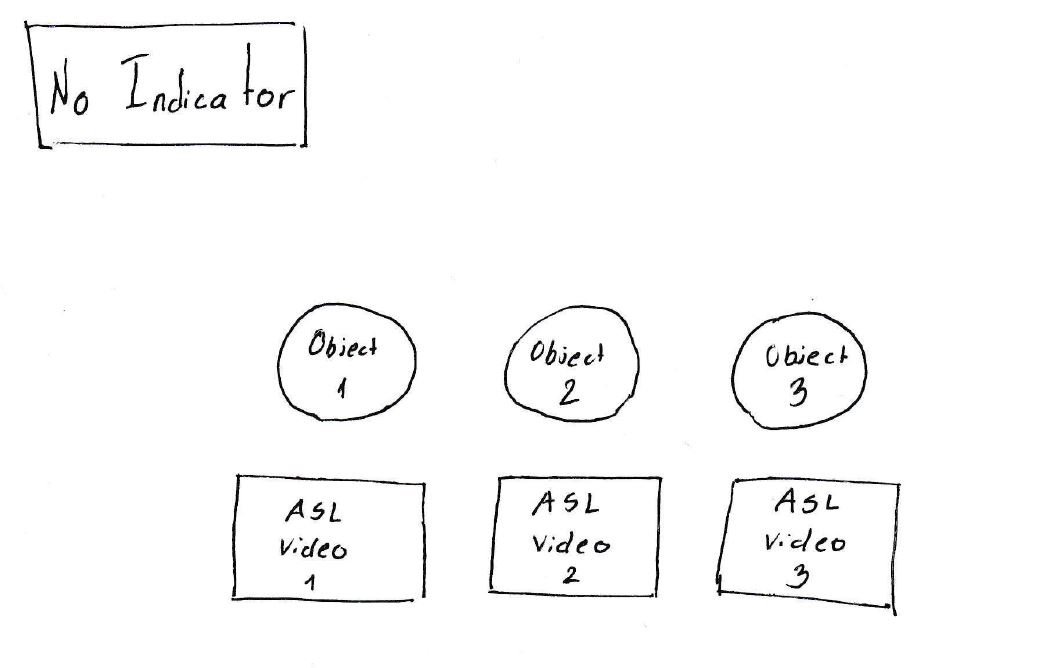 No Indicator
Object
1
Object
2
Object
3
ASL
Video
1
ASL
Video
2
ASL
Video
3